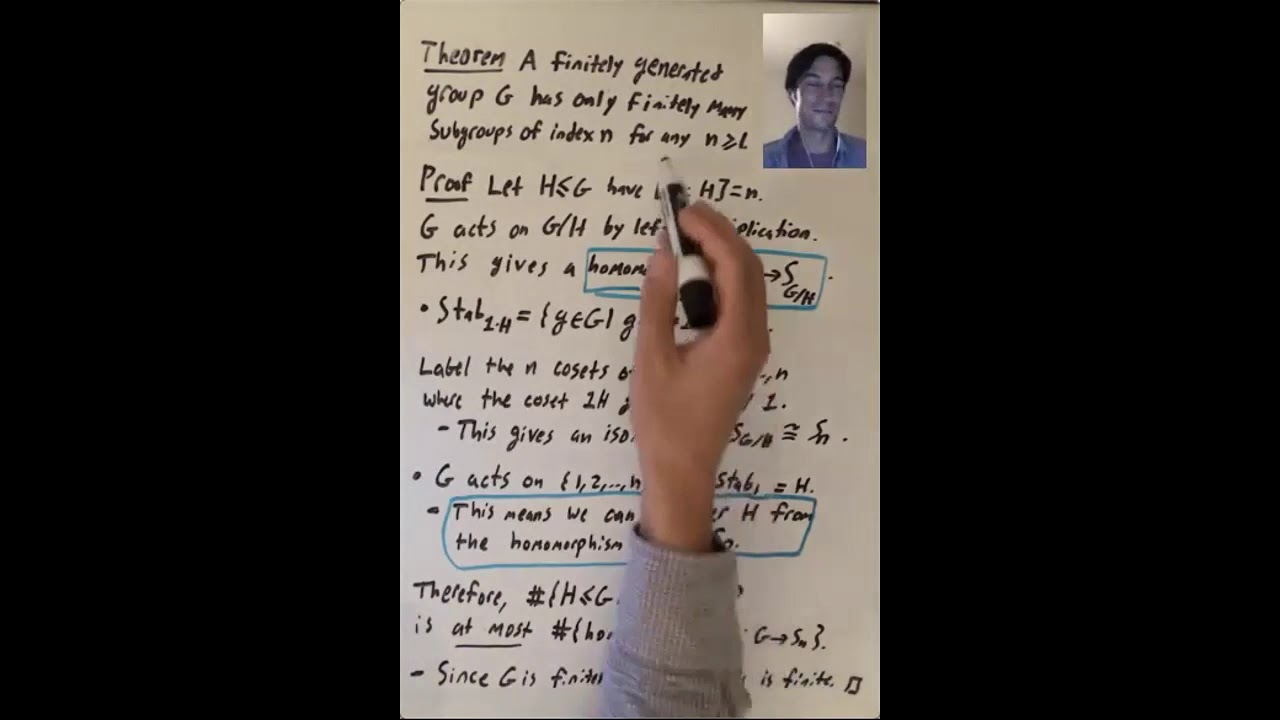 Theorem A finitely generated
group G has only finitely many
subgroups of index n for any n≥1.
Proof Let H≤G have : H]=n.
G acts on G/H by lef iplication.
This gives a homom →S_G/H.
• Stab_1·H = {g∈G| g
Label the n cosets o ..,n
where the coset 1H 1.
- This gives an iso S_G/H ≅ Sn.
• G acts on {1,2,..,n Stab₁ = H.
- This means we can er H from
the homomorphism Sn.
Therefore, #{H≤G
is at most #{ho : G→Sn}.
- Since G is finite is finite. □